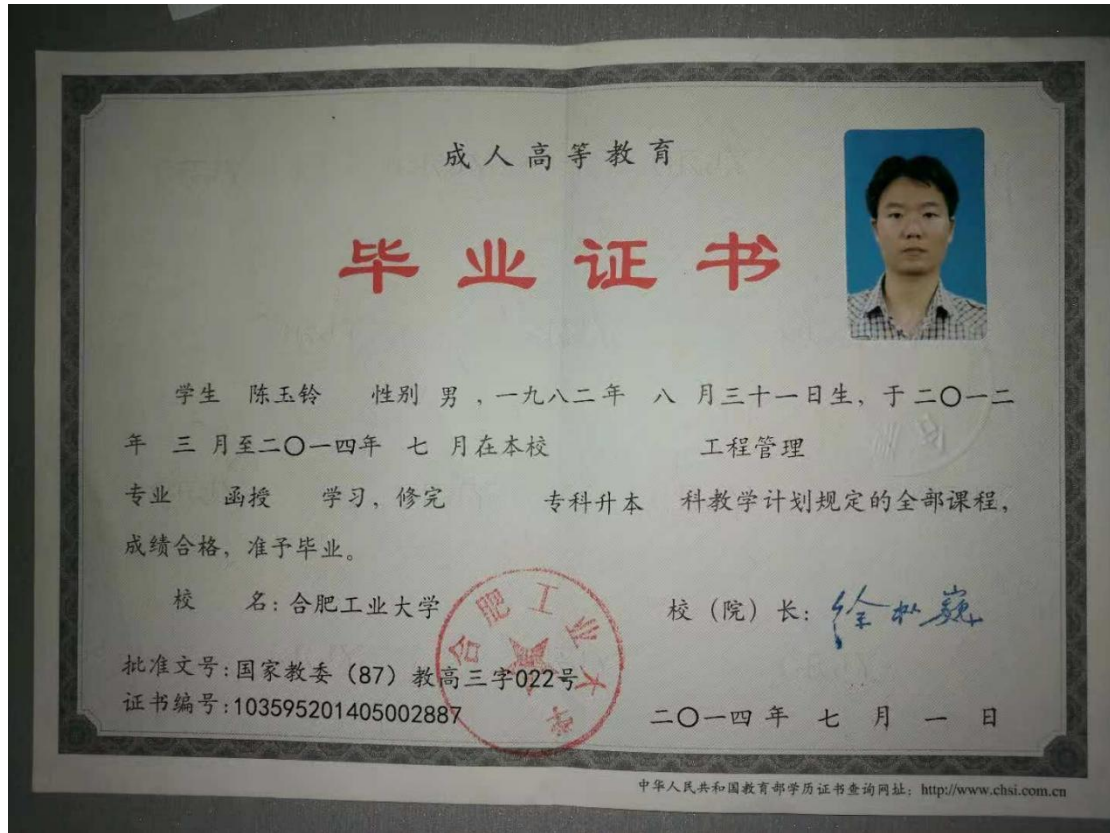 成人高等教育
毕业证书
学生 陈玉铃 性别 男 ，一九八二年 八 月三十一日生，于二〇一二
年 三 月至二〇一四年 七 月在本校 工程管理
专业 函授 学习，修完 专科升本 科教学计划规定的全部课程，
成绩合格，准予毕业。
校 名：合肥工业大学 校（院）长：徐枞巍
合肥工业大学
批准文号：国家教委（87）教高三字022号
证书编号：103595201405002887 二〇一四年 七 月 一 日
中华人民共和国教育部学历证书查询网址：http://www.chsi.com.cn